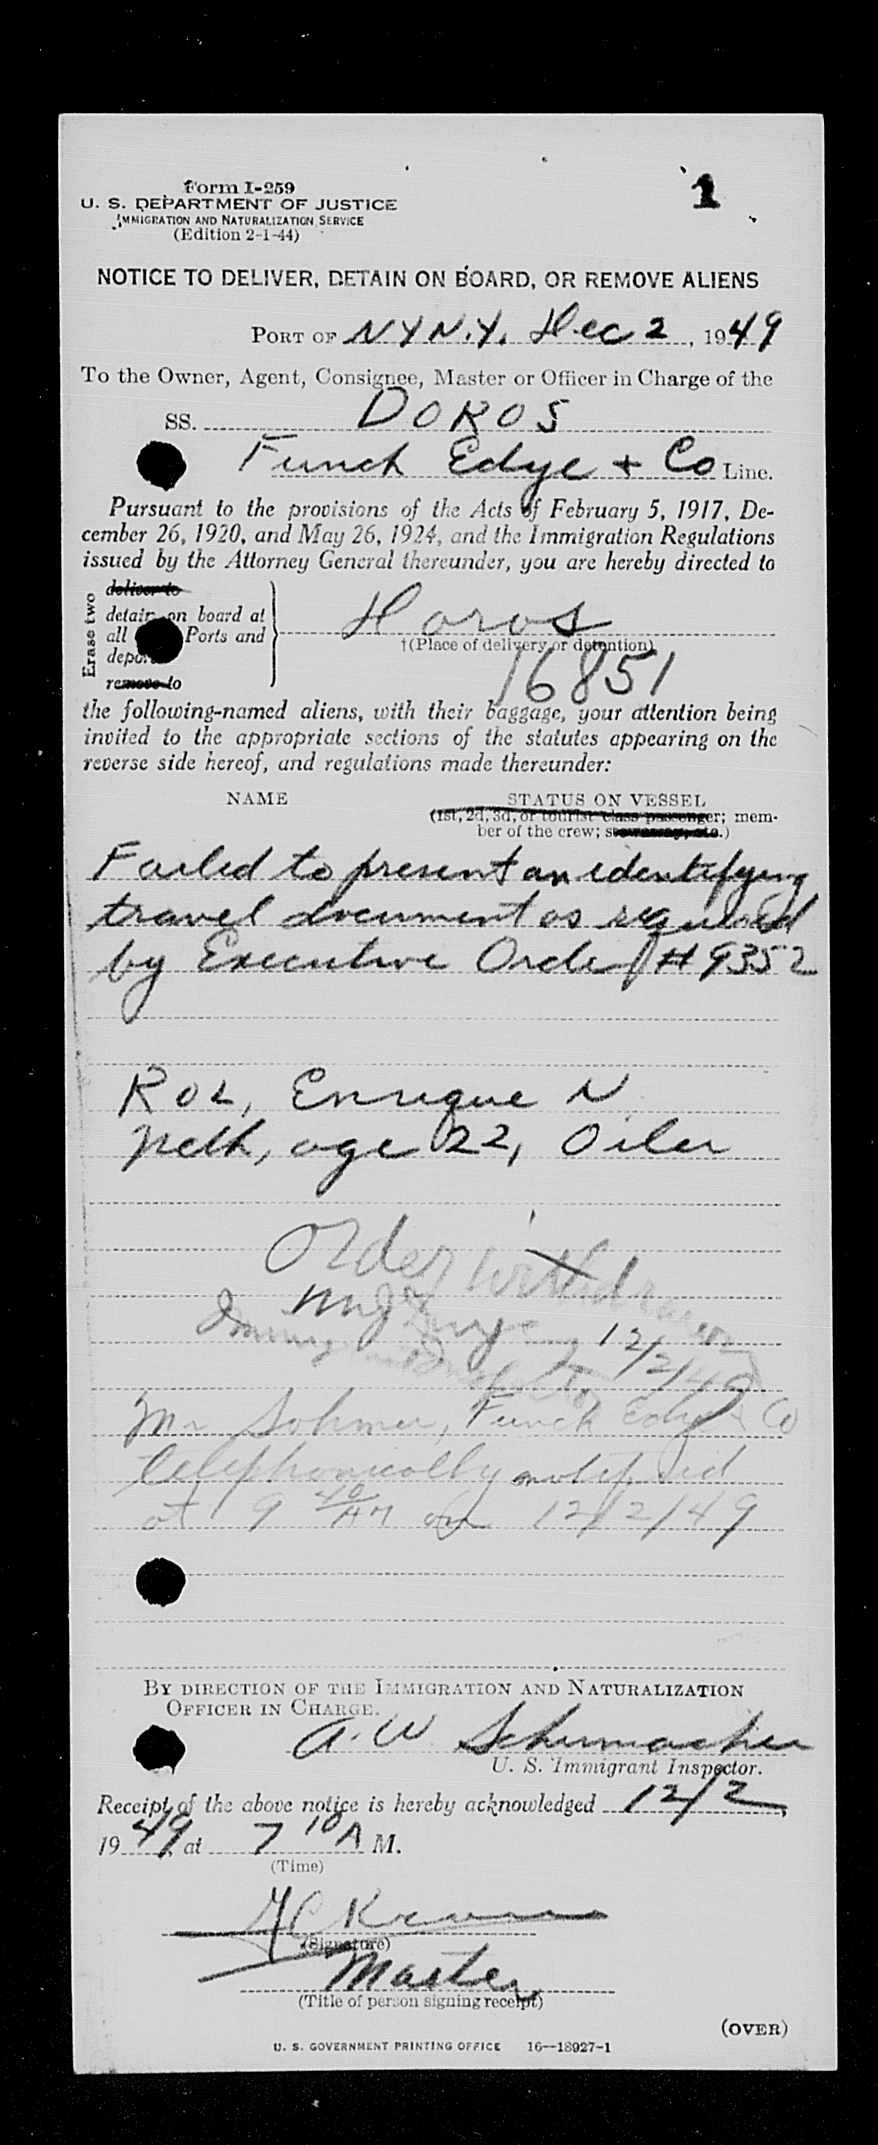 1
Form I-259
U. S. DEPARTMENT OF JUSTICE
IMMIGRATION AND NATURALIZATION SERVICE
(Edition 2-1-44)
NOTICE TO DELIVER, DETAIN ON BOARD, OR REMOVE ALIENS
PORT OF N Y N.Y. Dec 2, 1949
To the Owner, Agent, Consignee, Master or Officer in Charge of the
SS. DOROS
Funch Edye + Co Line.
Pursuant to the provisions of the Acts of February 5, 1917, De-
cember 26, 1920, and May 26, 1924, and the Immigration Regulations
issued by the Attorney General thereunder, you are hereby directed to
Erase two
deliver to
detain on board at
all Ports and
deport
remove to
Doros
†(Place of delivery or detention)
16851
the following-named aliens, with their baggage, your attention being
invited to the appropriate sections of the statutes appearing on the
reverse side hereof, and regulations made thereunder:
NAME STATUS ON VESSEL
(1st, 2d, 3d, or tourist class passenger; mem-
ber of the crew; stowaway, etc.)
Failed to present an identifying
travel document as required
by Executive Order # 9352
Enrique N
Neth, age 22, Oiler
Order Withdrawn
12/2/49
Mr Sohmer, Funch Edye & Co
telephonically notified
at 9 40 AM on 12/2/49
BY DIRECTION OF THE IMMIGRATION AND NATURALIZATION
OFFICER IN CHARGE.
A. W. Schumacher
U. S. Immigrant Inspector.
Receipt of the above notice is hereby acknowledged 12/2,
1949 at 7 10 A M.
(Time)
(Signature)
Master
(Title of person signing receipt)
(OVER)
U. S. GOVERNMENT PRINTING OFFICE 16—18927-1